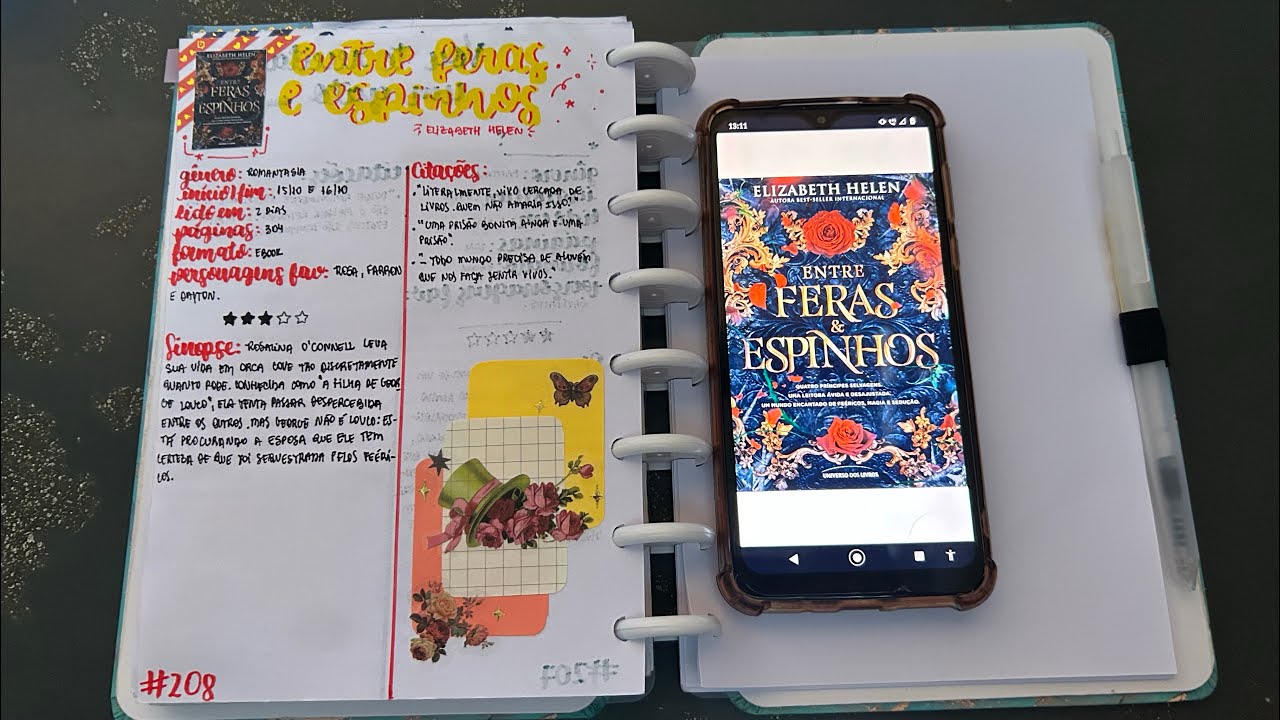 entre feras
e espinhos
ELIZABETH HELEN
ELIZABETH HELEN
ENTRE
FERAS
&
ESPINHOS
gênero: ROMANTASIA
início/fim: 15/10 E 16/10
lido em: 2 DIAS
páginas: 304
formato: EBOOK
personagens fav: ROSA, FARRON
E DAYTON.
Sinopse: ROSALINA O'CONNELL LEVA
SUA VIDA EM ORCA COVE TÃO DISCRETAMENTE
QUANTO PODE. CONHECIDA COMO "A FILHA DE GEOR
GE LOUCO", ELA TENTA PASSAR DESPERCEBIDA
ENTRE OS OUTROS. MAS GEORGE NÃO É LOUCO: ES-
TÁ PROCURANDO A ESPOSA QUE ELE TEM
CERTEZA DE QUE FOI SEQUESTRADA PELOS FEÉRI-
COS.
#208
Citações:
"LITERALMENTE, VIVO CERCADA DE
LIVROS. QUEM NÃO AMARIA ISSO?"
"UMA PRISÃO BONITA AINDA É UMA
PRISÃO".
"- TODO MUNDO PRECISA DE ALGUÉM
QUE NOS FAÇA SENTIR VIVOS."
#207
13:11
ELIZABETH HELEN
AUTORA BEST-SELLER INTERNACIONAL
ENTRE
FERAS
&
ESPINHOS
QUATRO PRÍNCIPES SELVAGENS.
UMA LEITORA ÁVIDA E DESAJUSTADA.
UM MUNDO ENCANTADO DE FEÉRICOS, MAGIA E SEDUÇÃO.
UNIVERSO DOS LIVROS